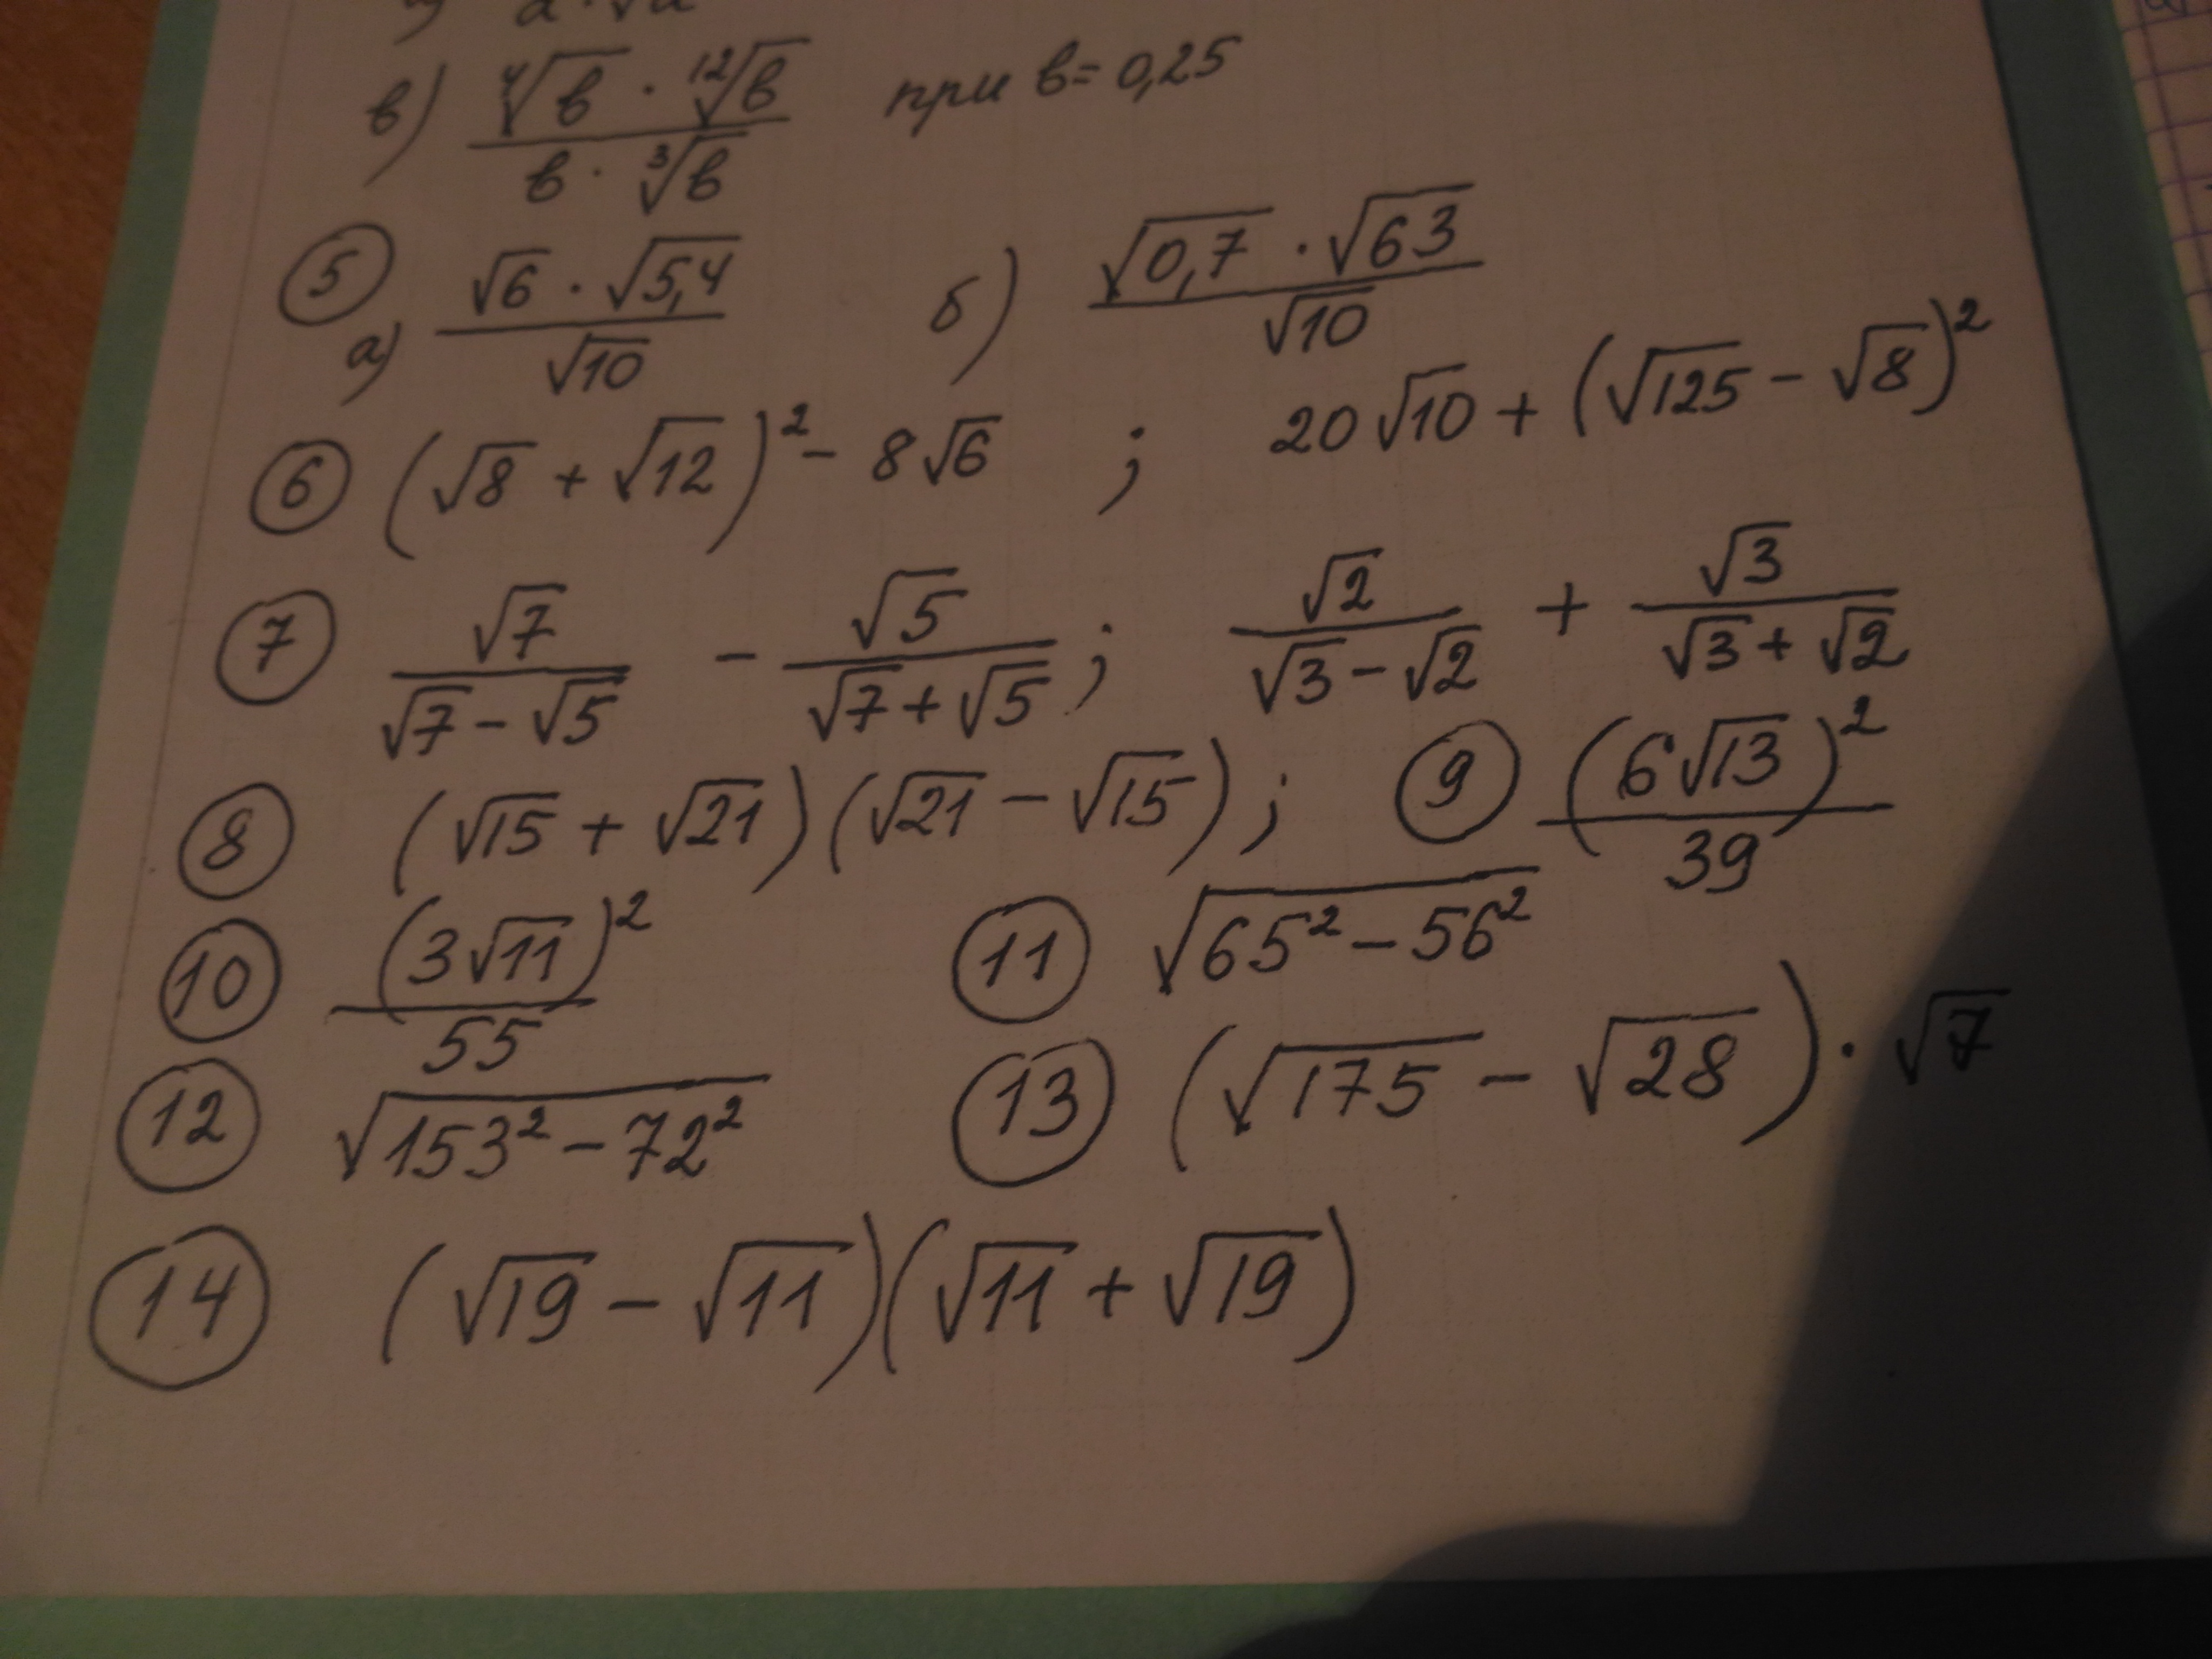 в) (⁴√в · ¹²√в) / (в · ³√в) при в = 0,25
⑤ а) (√6 · √5,4) / √10 б) (√0,7 · √63) / √10
⑥ (√8 + √12)² - 8√6 ; 20√10 + (√125 - √8)²
⑦ √7 / (√7 - √5) - √5 / (√7 + √5) ; √2 / (√3 - √2) + √3 / (√3 + √2)
⑧ (√15 + √21)(√21 - √15) ; ⑨ (6√13)² / 39
⑩ (3√11)² / 55 ⑪ √(65² - 56²)
⑫ √(153² - 72²) ⑬ (√175 - √28) · √7
⑭ (√19 - √11)(√11 + √19)